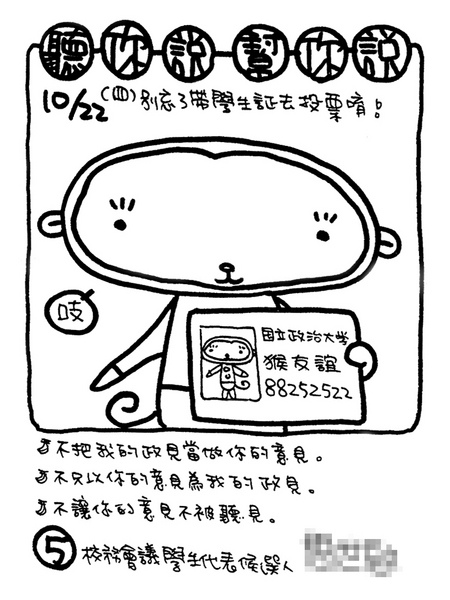 聽你說幫你說
10/22(四)別忘了帶學生証去投票唷!
吱
国立政治大学
猴友誼
88252522
不把我的政見當做你的意見。
不只以你的意見為我的政見。
不讓你的意見不被聽見。
5 校務會議學生代表候選人